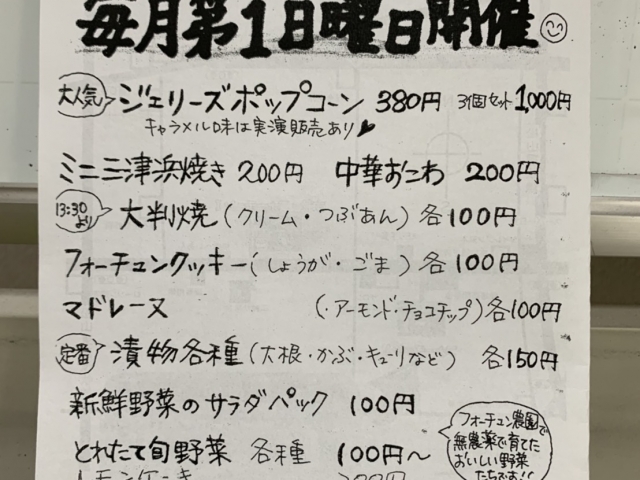 毎月第1日曜日開催
大人気 ジェリーズポップコーン 380円 3個セット 1,000円
キャラメル味は実演販売あり♥
ミニ三津浜焼き 200円 中華おこわ 200円
13:30より 大判焼(クリーム・つぶあん)各100円
フォーチュンクッキー(しょうが・ごま)各100円
マドレーヌ (・アーモンド・チョコチップ)各100円
定番 漬物各種(大根・かぶ・キューリなど) 各150円
新鮮野菜のサラダパック 100円
とれたて旬野菜 各種 100円〜
フォーチュン農園で
無農薬で育てた
おいしい野菜
たちです!!
レモンケーキ